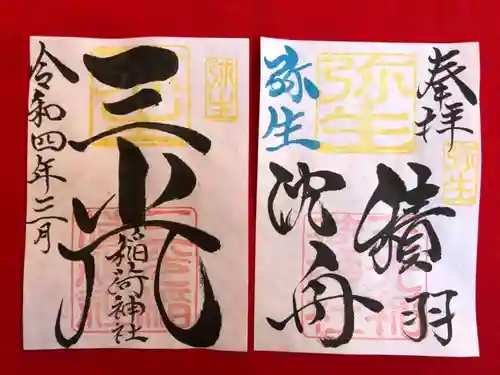 奉拝
弥生
積羽
弥生
沈舟
弥生
弥生
三光
稲荷神社
令和四年三月